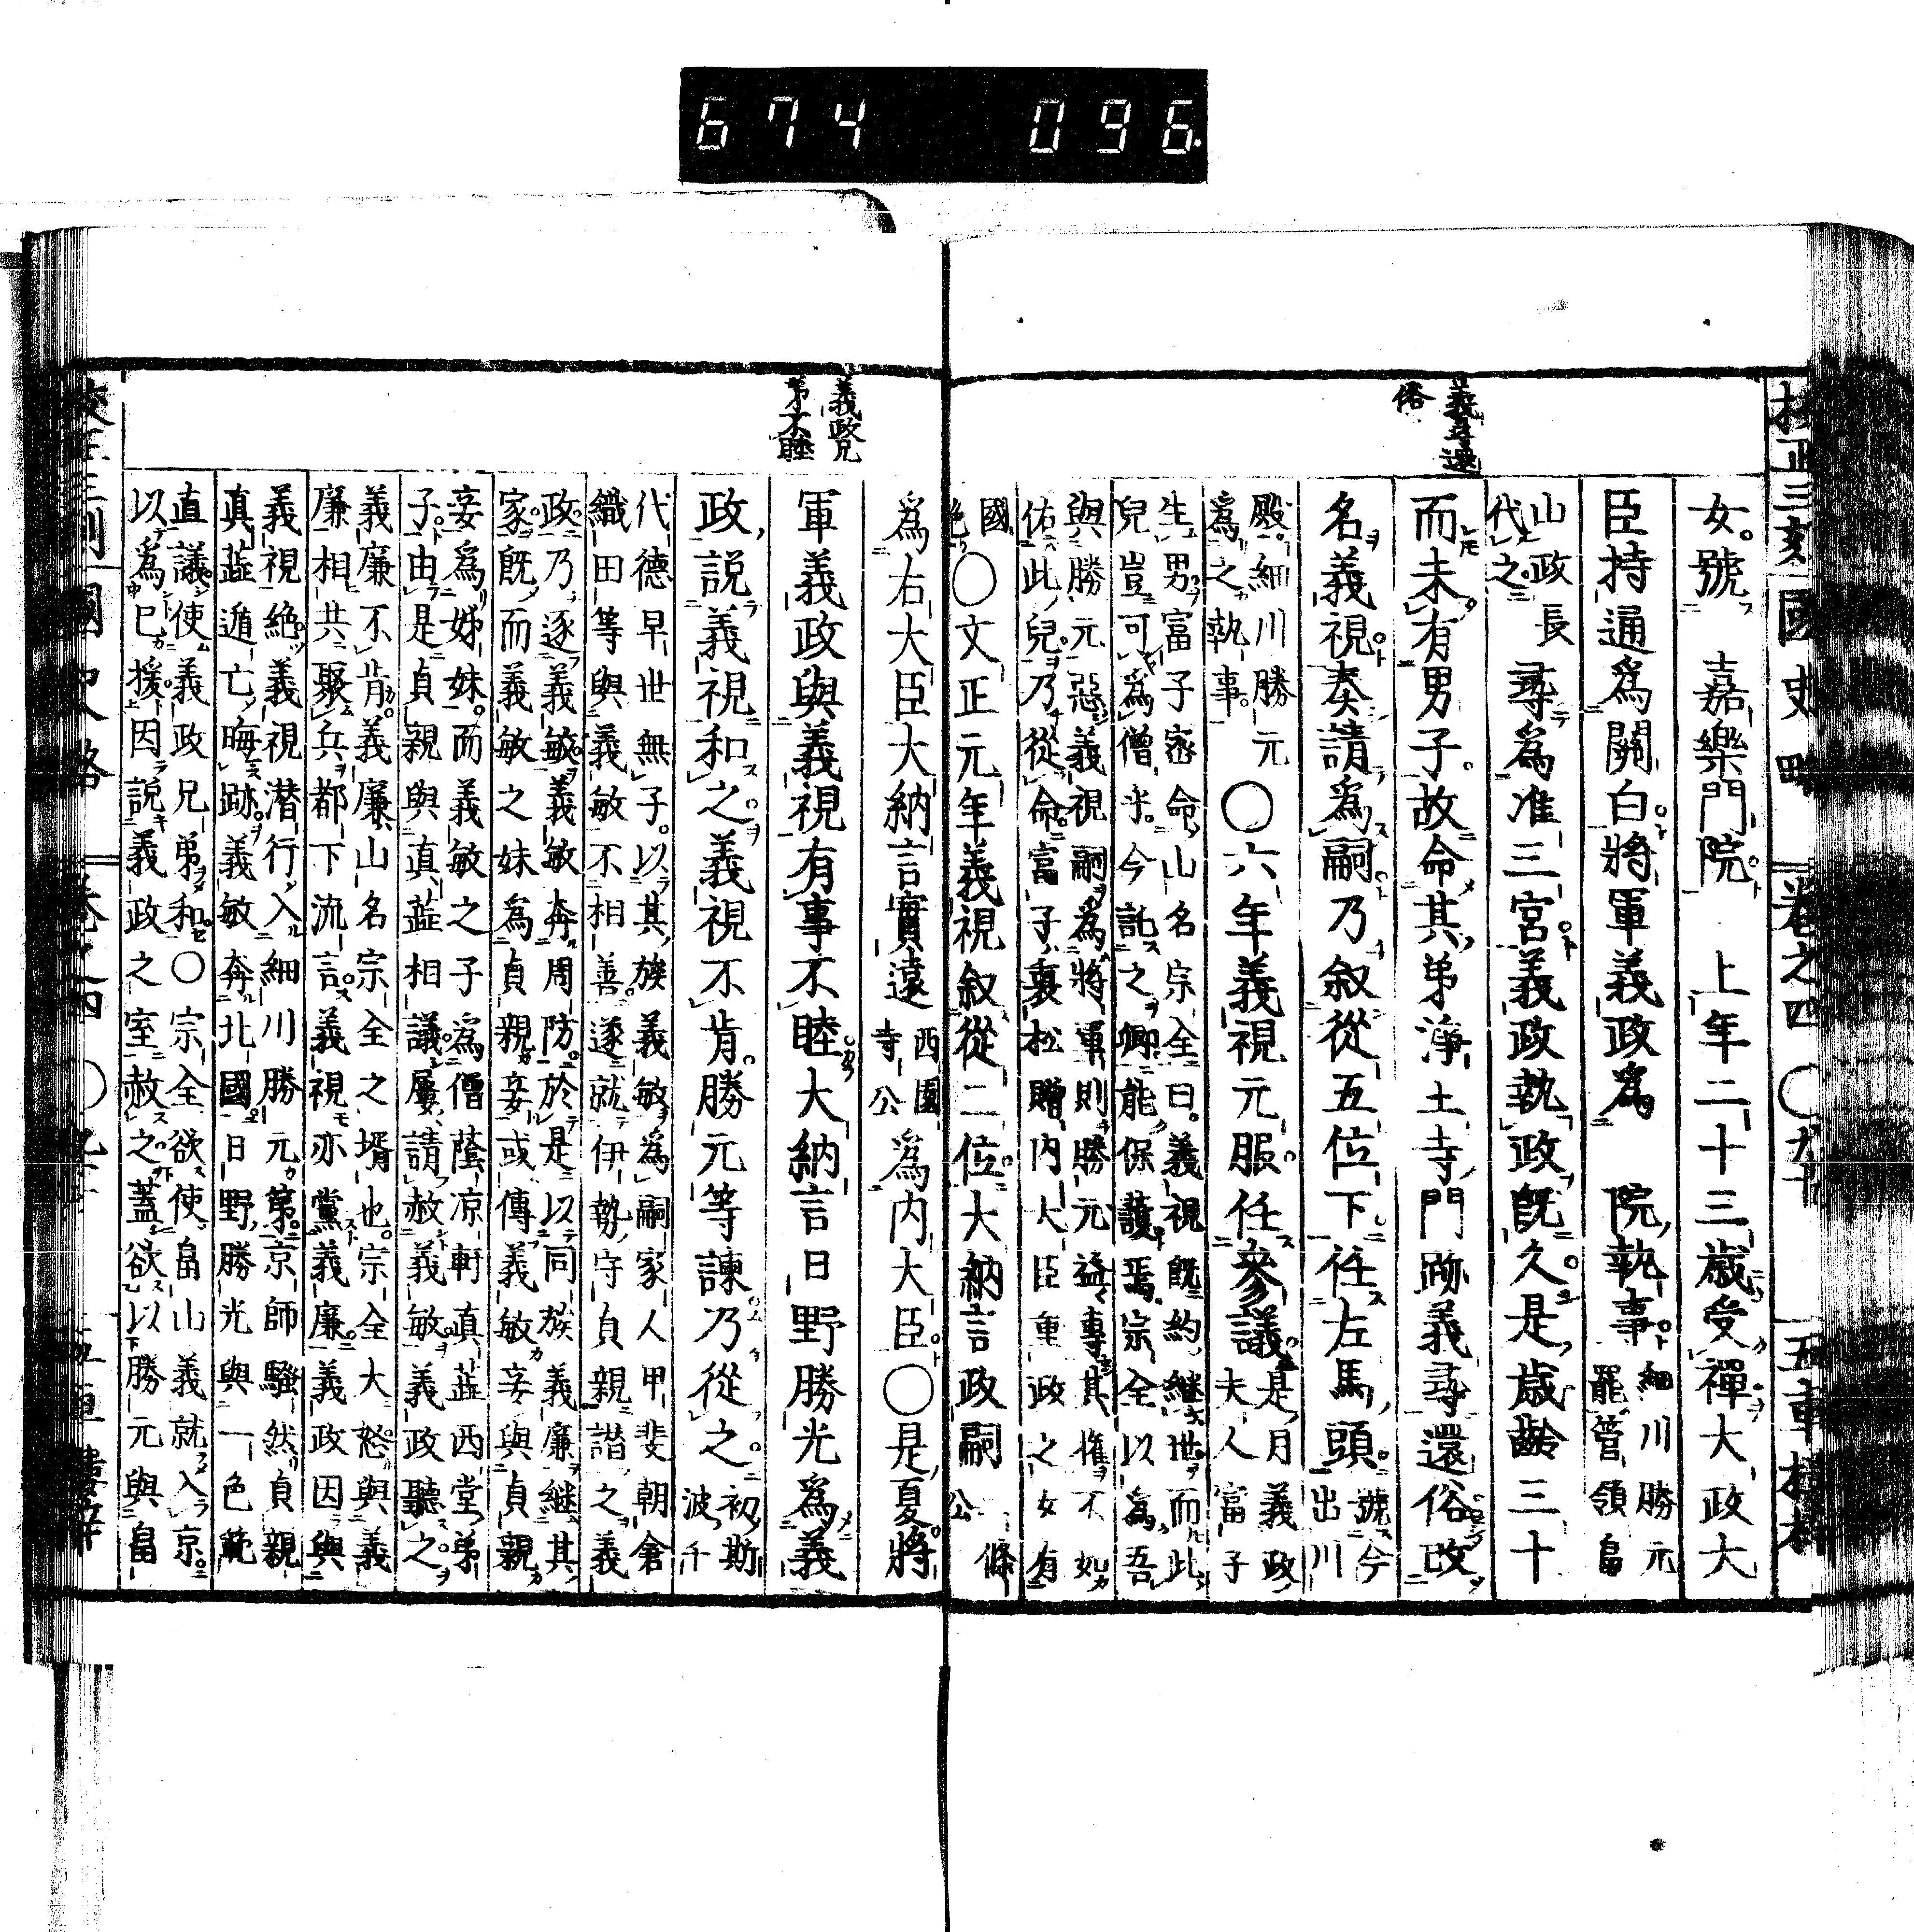 674 096
校正三刻國史略 卷之四 ○九十 五車樓梓
義立還
俗
女號 嘉樂門院 上年二十三歲受禪大政大
臣持通爲關白將軍義政爲 院執事細川勝元
罷管領畠
山政長
代之 尋爲准三宮義政執政既久是歲齡三十
而未有男子故命其弟淨土寺門跡義尋還俗改
名義視奏請爲嗣乃叙從五位下任左馬頭號今
出川
殿細川勝元
爲之執事 ○六年義視元服任參議是月義政
夫人富子
生男富子密命山名宗全曰義視既約繼世而此
兒豈可爲僧乎今託之卿能保護焉宗全以爲吾
與勝元惡義視嗣爲將軍則勝元益專其權不如
佑此兒乃從命富子裏松贈内大臣重政之女有
國
色 ○文正元年義視叙從二位大納言政嗣 條
公
爲右大臣大納言實遠西園
寺公爲内大臣○是夏將
義政兄
弟不睦
軍義政與義視有事不睦大納言日野勝光爲義
政説義視和之義視不肯勝元等諫乃從之初斯
波千
代德早世無子以其族義敏爲嗣家人甲斐朝倉
織田等與義敏不相善遂就伊勢守貞親譖之義
政乃逐義敏義敏奔周防於是以同族義廉繼其
家既而義敏之妹爲貞親妾或傳義敏妾與貞親
妾爲姊妹而義敏之子爲僧蔭凉軒真蘂西堂弟
子由是貞親與真蘂相議屢請赦義敏義政聽之
義廉不肯義廉山名宗全之壻也宗全大怒與義
廉相共聚兵都下流言義視亦黨義廉義政因與
義視絶義視潜行入細川勝元第京師騷然貞親
真蘂遁亡晦跡義敏奔北國日野勝光與一色範
直議使義政兄弟和○宗全欲使畠山義就入京
以爲已援因説義政之室赦之蓋欲以勝元與畠